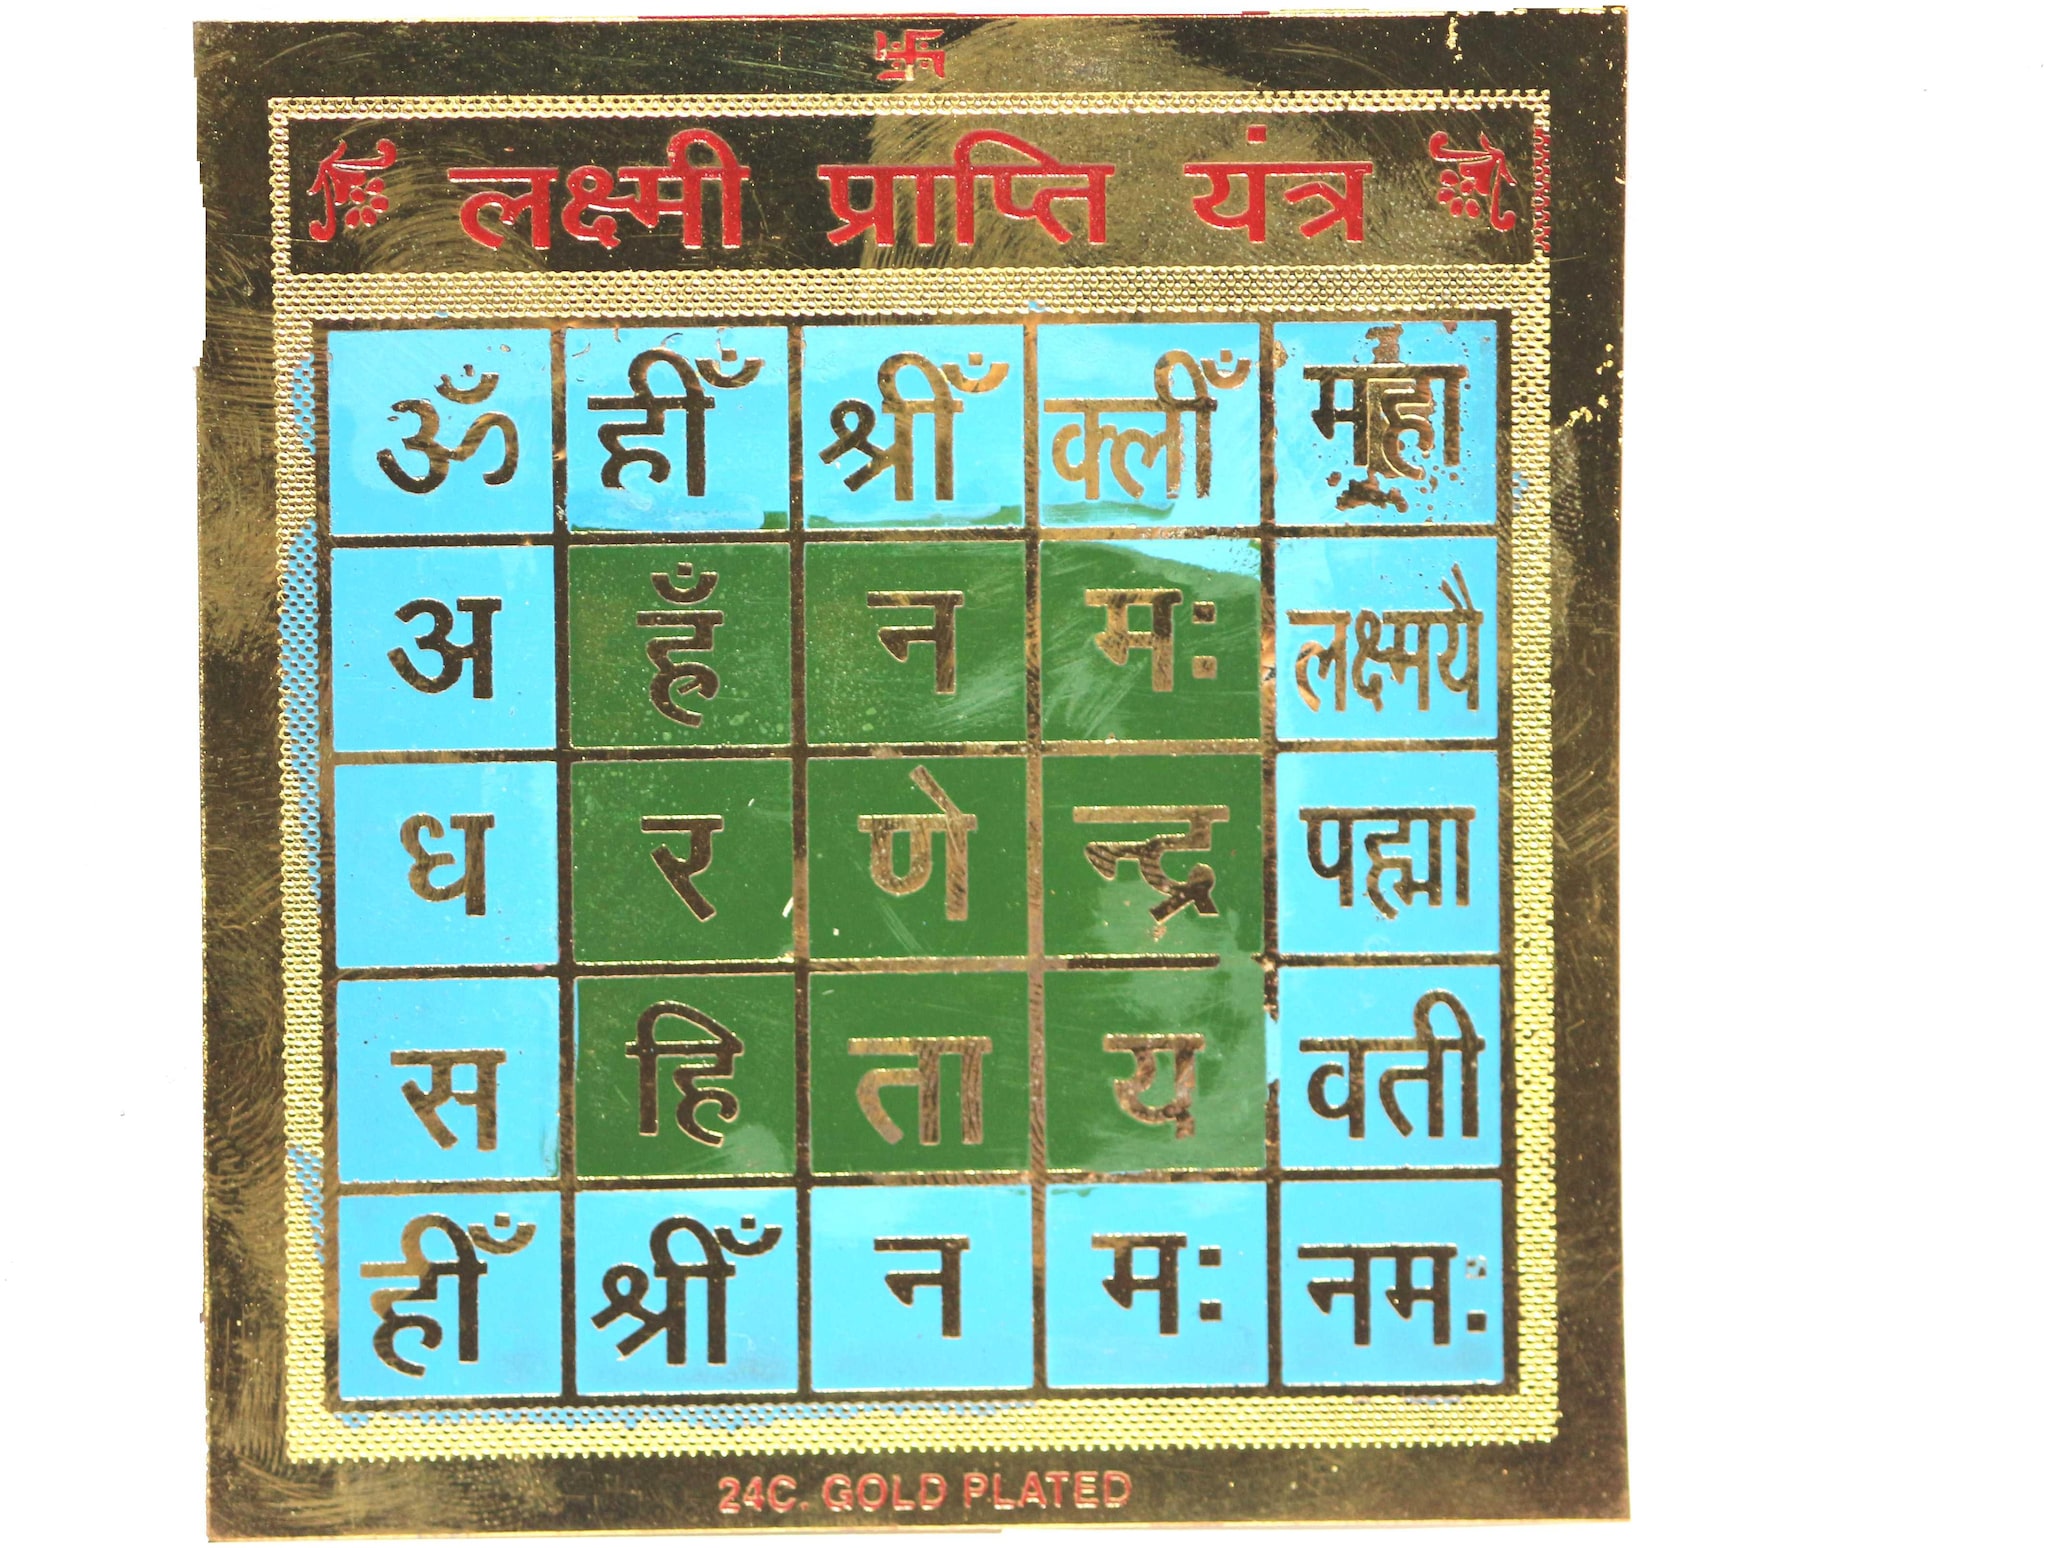 लक्ष्मी प्राप्ति यंत्र
ॐ ह्रीँ श्रीँ क्लीँ महा
अ न मः लक्ष्मयै
ध र णे न्द्र पद्मा
स हि ता य वती
ह्रीँ श्रीँ न मः नमः
24C. GOLD PLATED